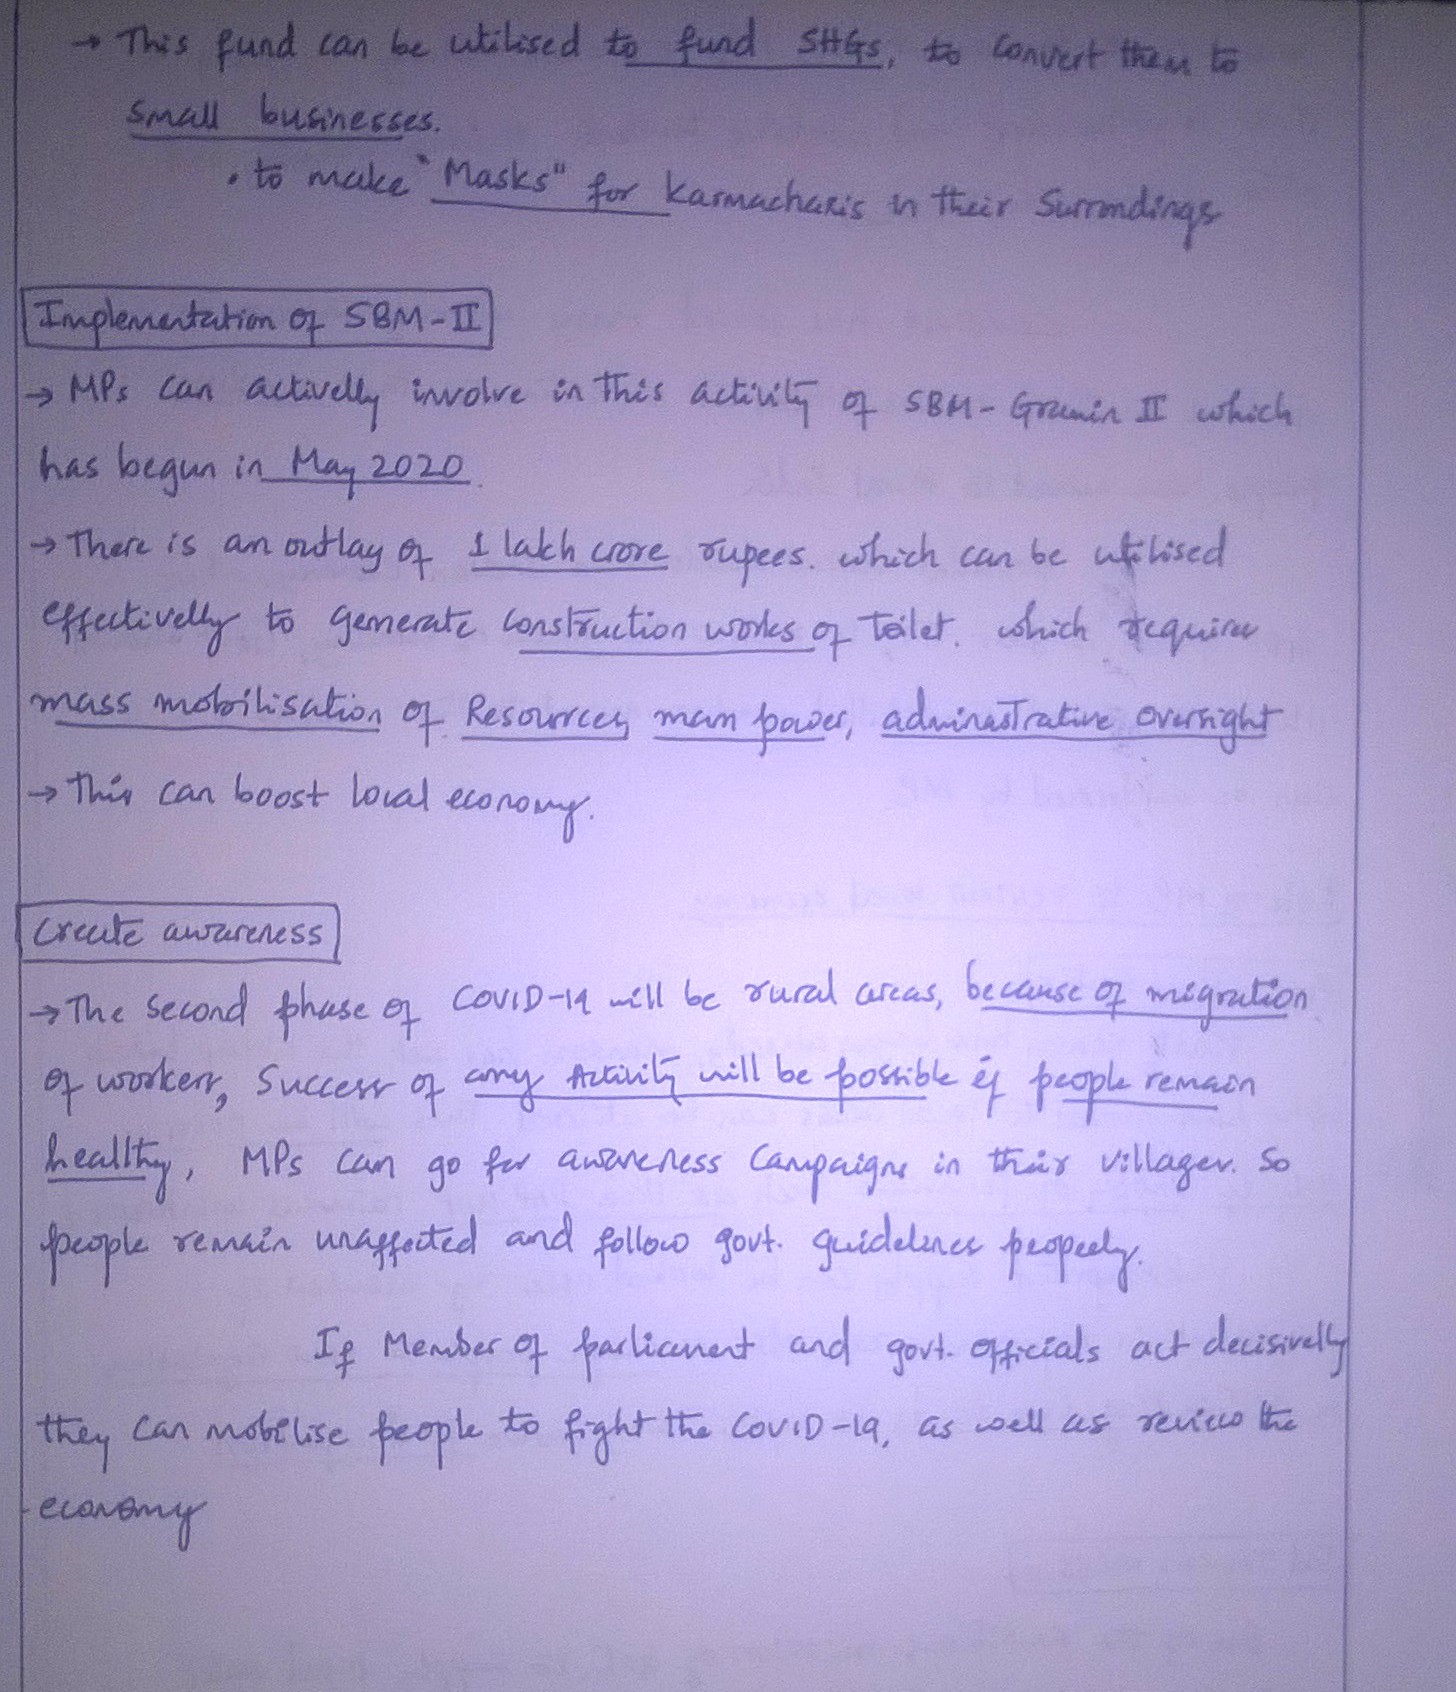 → This fund can be utilised to fund SHGs, to convert them to
small businesses.
• to make "Masks" for Karmacharis in their Surrondings
Implementation of SBM-II
→ MPs can activelly involve in this activity of SBM-Gramin II which
has begun in May 2020.
→ There is an outlay of 1 lakh crore rupees. which can be utilised
effectivelly to generate construction works of toilet. which requires
mass mobilisation of Resources, man power, adminastrative oversight
→ This can boost local economy.
Create awareness
→ The second phase of COVID-19 will be rural areas, because of migration
of workers, Success of any Activity will be possible if people remain
healthy, MPs can go for awareness Campaigns in their villages. So
people remain unaffected and follow govt. guidelines peopeely.
If Member of parliament and govt. officials act decisivelly
they can mobilise people to fight the COVID-19, as well as review the
economy